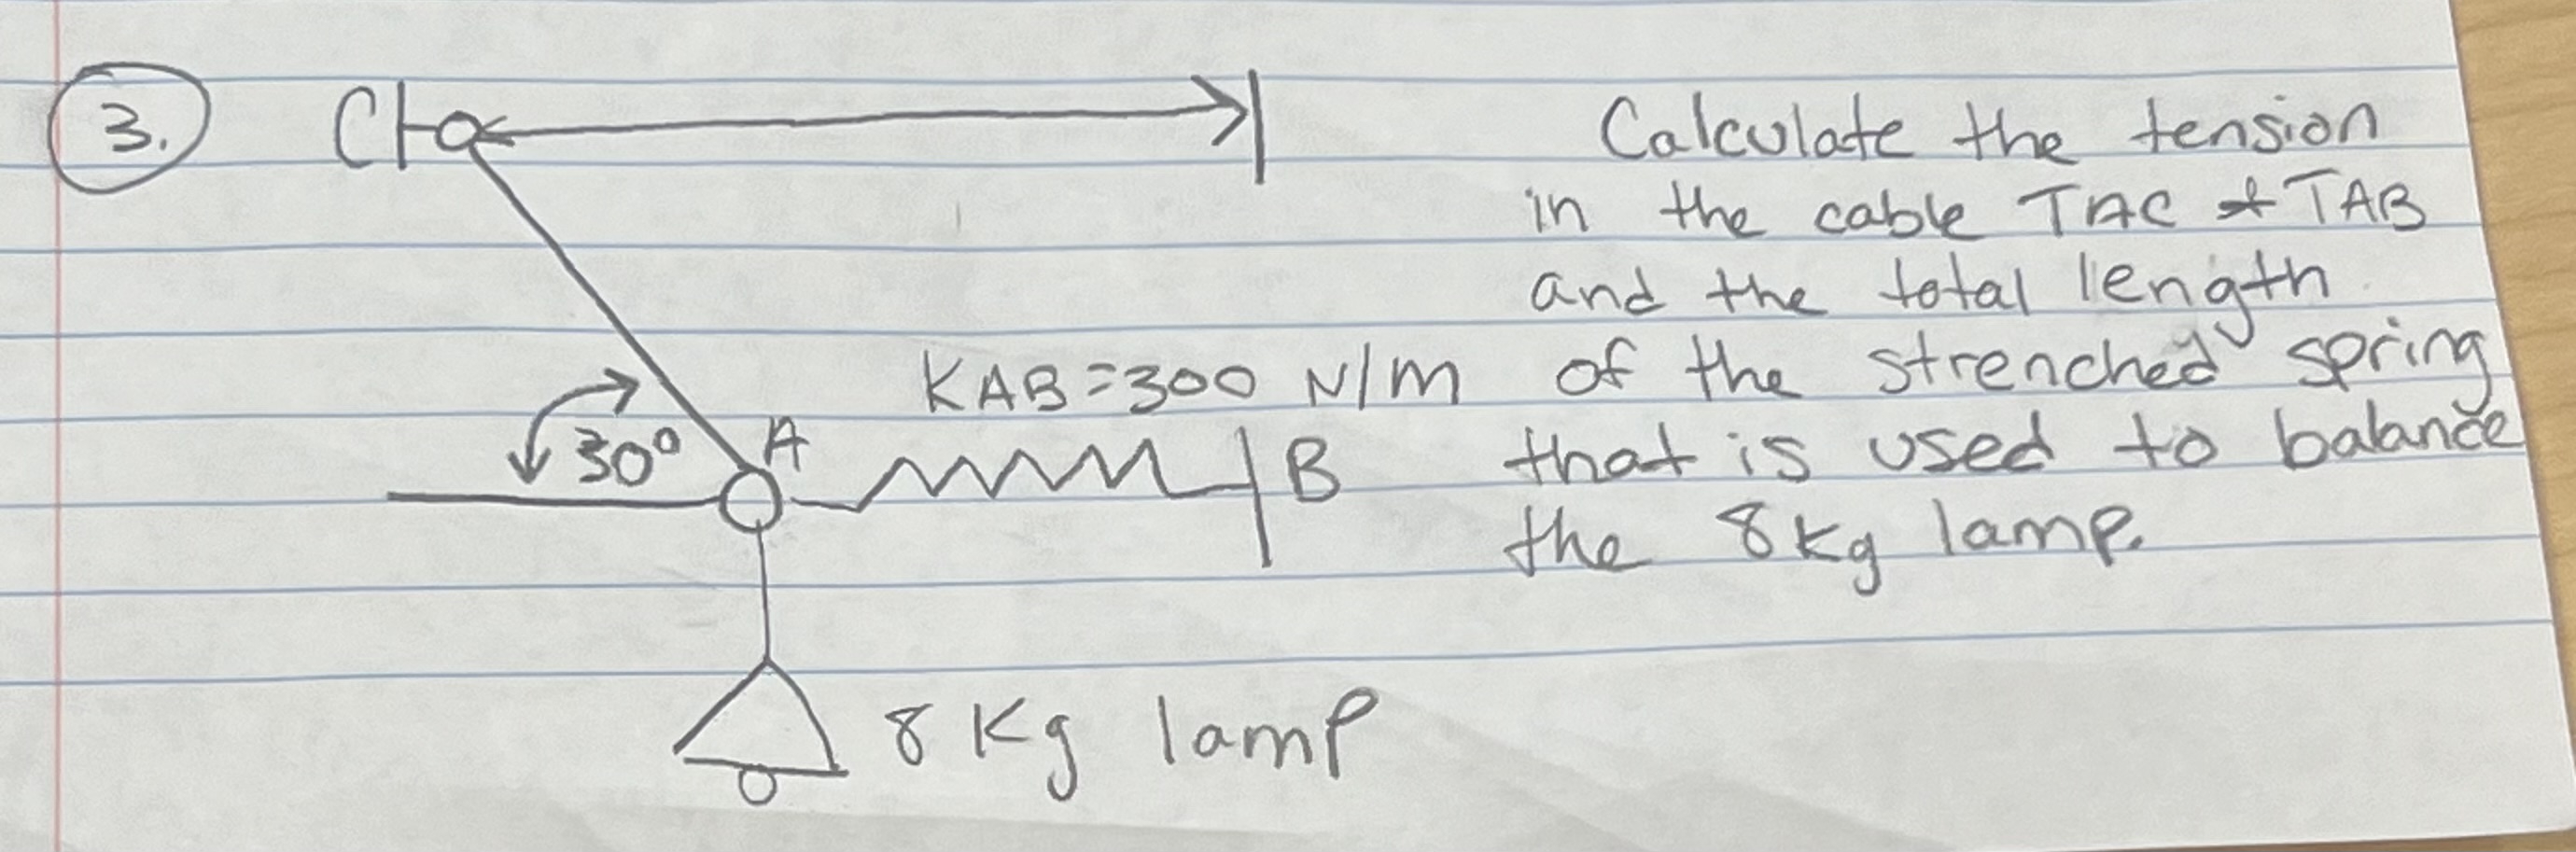 3.
C
Calculate the tension
in the cable TAC & TAB
and the total length
KAB=300 N/m
of the strenched spring
30°
A
B
that is used to balance
the 8kg lamp.
8 Kg lamp